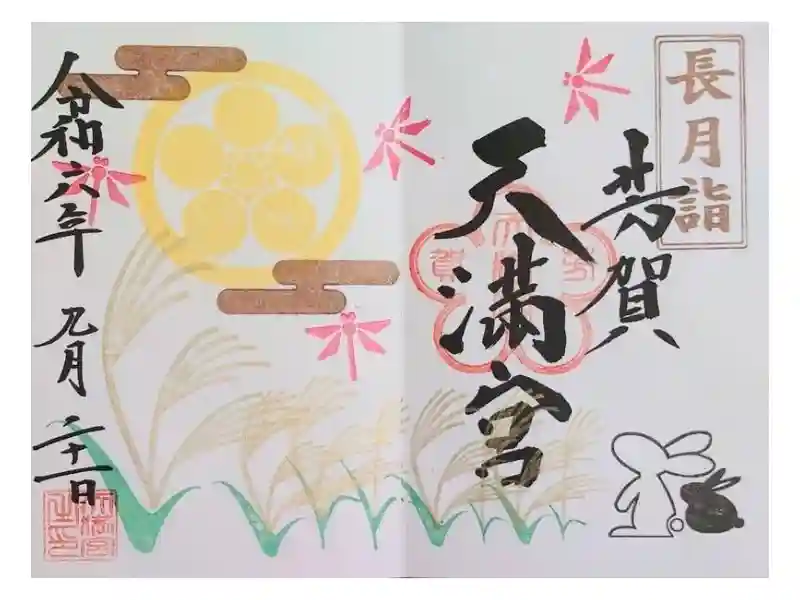 長月詣
芳賀
天満宮
令和六年 九月 二十一日